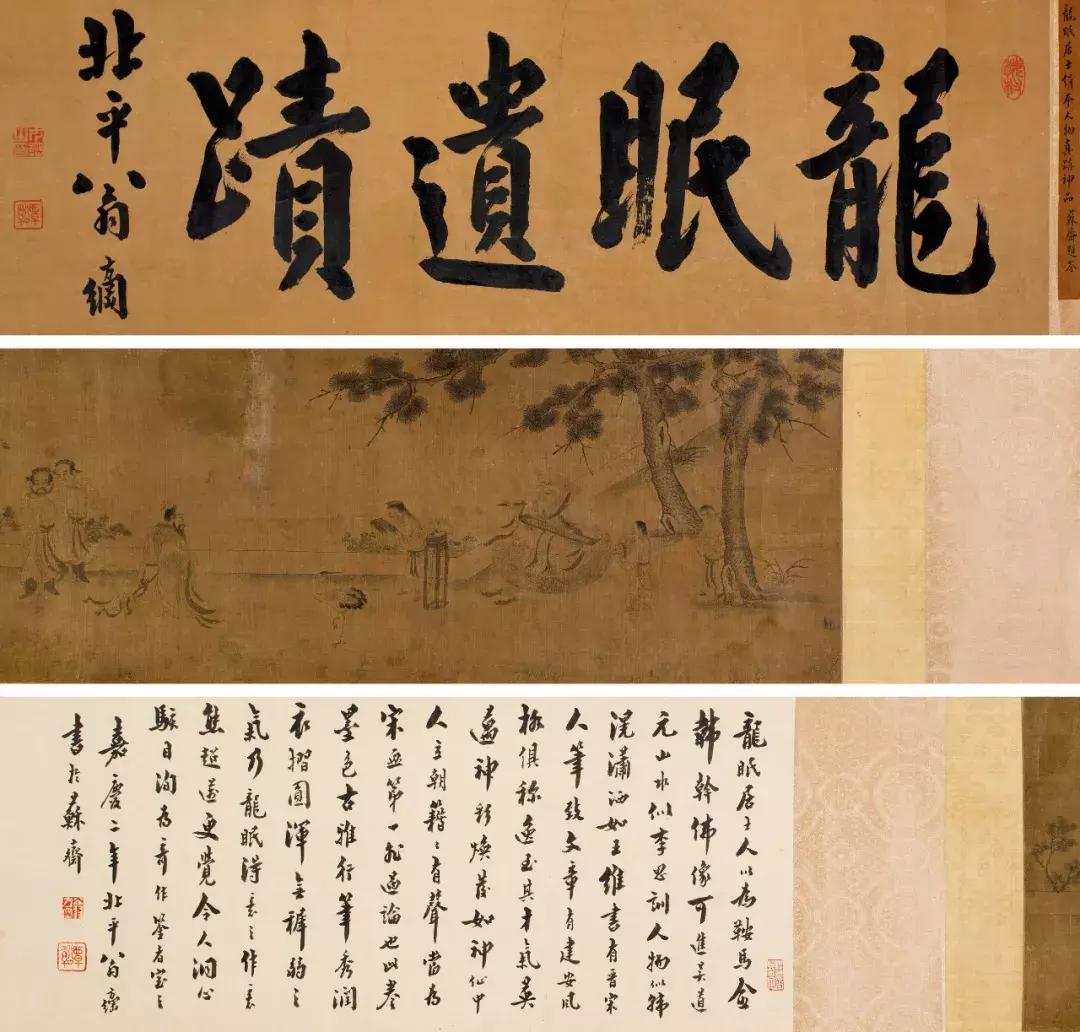 龍眠居士人物真跡神品 蘇齋題
龍眠遺蹟
北平翁方綱
龍眠居士人以為鞍馬企
韓幹佛像可進吳道
元山水似李思訓人物似韓
滉瀟洒如王維書有晉宋
人筆致文章有建安風
格俱稱逸至其才氣英
邁神彩煥發如神仙中
人立朝藉〻有聲當為
宋画第一非過論也此卷
墨色古雅行筆秀潤
衣摺圓渾無弱之
氣乃龍眠得意之作意
態超逸更覺令人洞心
駭目洵為奇作鑒者寶之
嘉慶二年北平翁方綱
書於蘇齋